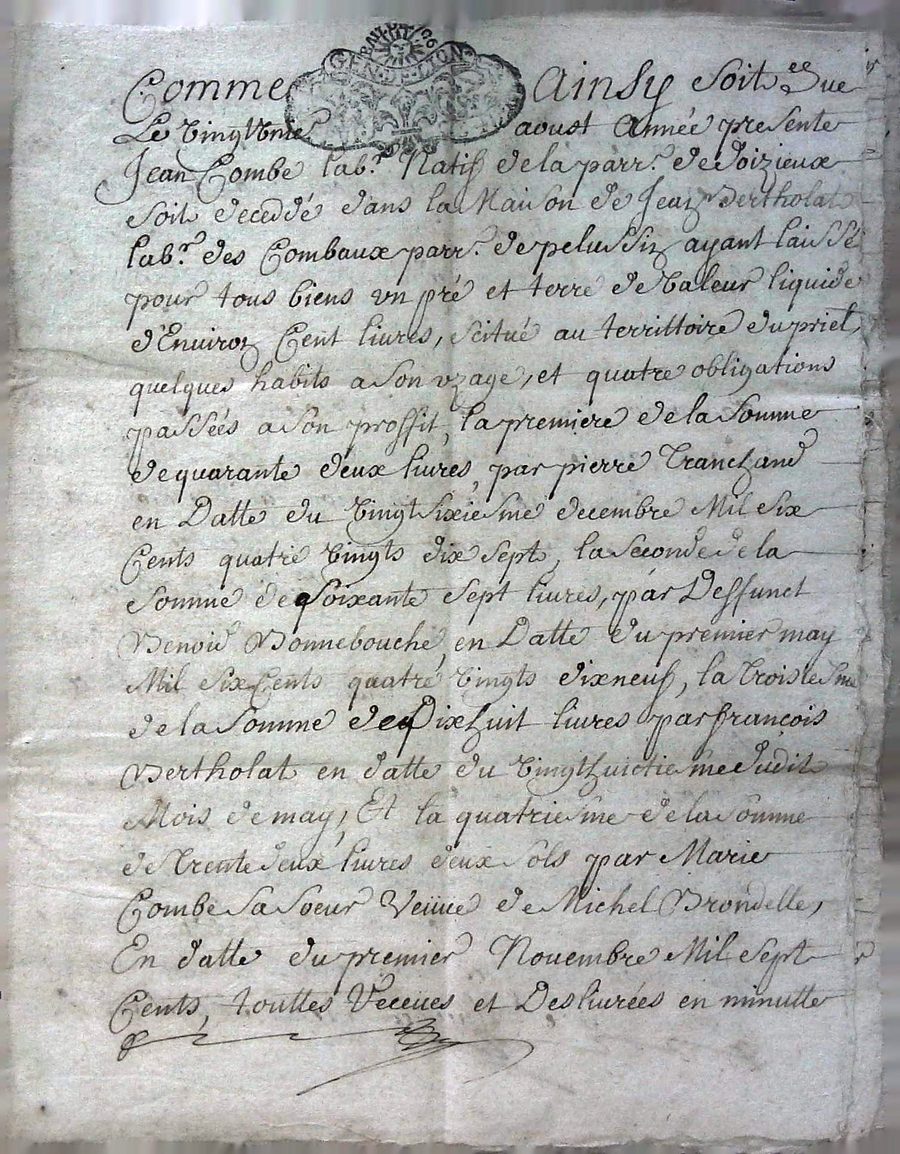 GEN. DE LION
Comme Ainsy soit que
Le vingtième aoust Année presente
Jean Combe lab.r Natif de la parr.e de doizieux
soit deceddé dans la Maison de Jean Bertholat
lab.r des Combaux parr.e de pelussin ayant laissé
pour tous biens un pré et terre de valeur liquide
d'Environ Cent livres, scitué au territtoire du priel,
quelques habits a son uzage, et quatre obligations
passées a son proffit, la premiere de la somme
de quarante deux livres, par pierre Tranchand
en Datte du vingt sixiesme decembre Mil six
Cents quatre vingts dix sept, la seconde de la
somme de soixante sept livres, par Deffunct
Benoid Bonnebouche, en Datte du premier may
Mil six Cents quatre vingts dix neuf, la troisiesme
de la somme de Dixhuit livres par françois
Bertholat en datte du vingt huictiesme dudit
Mois de may, Et la quatriesme de la somme
de trente deux livres deux sols par Marie
Combe sa soeur Veuve de Michel Brondelle,
En datte du premier Novembre Mil sept
Cents, touttes Receues et Deslivrées en minutte